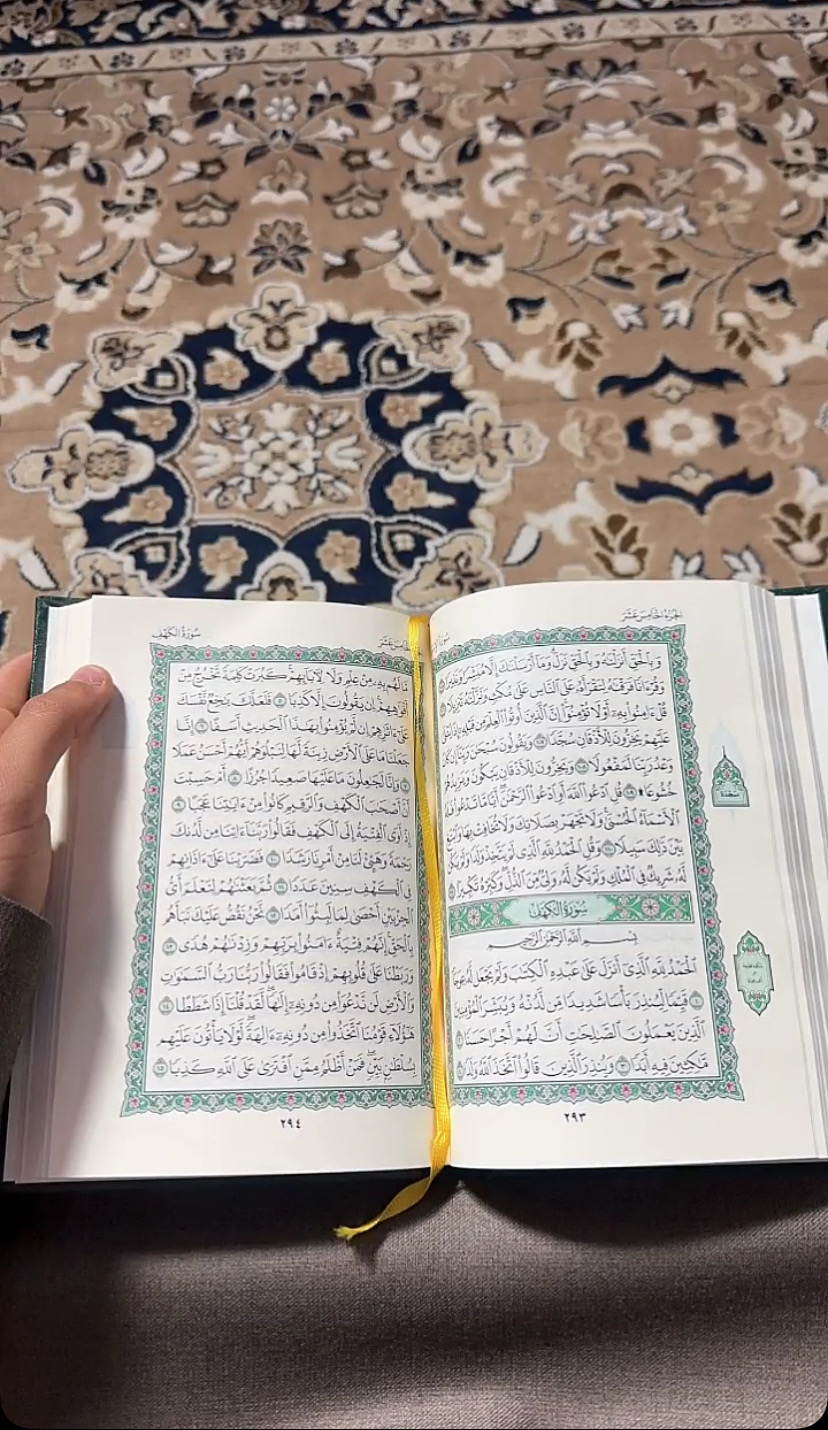 الجزء الخامس عشر
وَبِٱلْحَقِّ أَنزَلْنَٰهُ وَبِٱلْحَقِّ نَزَلَ وَمَآ أَرْسَلْنَٰكَ إِلَّا مُبَشِّرًا وَنَذِيرًا
وَقُرْءَانًا فَرَقْنَٰهُ لِتَقْرَأَهُۥ عَلَى ٱلنَّاسِ عَلَىٰ مُكْثٍ وَنَزَّلْنَٰهُ تَنزِيلًا ١٠٦
قُلْ ءَامِنُوا۟ بِهِۦٓ أَوْ لَا تُؤْمِنُوٓا۟ إِنَّ ٱلَّذِينَ أُوتُوا۟ ٱلْعِلْمَ مِن قَبْلِهِۦٓ إِذَا يُتْلَىٰ
عَلَيْهِمْ يَخِرُّونَ لِلْأَذْقَانِ سُجَّدًا ١٠٧ وَيَقُولُونَ سُبْحَٰنَ رَبِّنَآ إِن كَانَ
وَعْدُ رَبِّنَا لَمَفْعُولًا ١٠٨ وَيَخِرُّونَ لِلْأَذْقَانِ يَبْكُونَ وَيَزِيدُهُمْ
خُشُوعًا ۩ ١٠٩ قُلِ ٱدْعُوا۟ ٱللَّهَ أَوِ ٱدْعُوا۟ ٱلرَّحْمَٰنَ أَيًّا مَّا تَدْعُوا۟ فَلَهُ
ٱلْأَسْمَآءُ ٱلْحُسْنَىٰ وَلَا تَجْهَرْ بِصَلَاتِكَ وَلَا تُخَافِتْ بِهَا وَٱبْتَغِ
بَيْنَ ذَٰلِكَ سَبِيلًا ١١٠ وَقُلِ ٱلْحَمْدُ لِلَّهِ ٱلَّذِى لَمْ يَتَّخِذْ وَلَدًا وَلَمْ يَكُن
لَّهُۥ شَرِيكٌ فِى ٱلْمُلْكِ وَلَمْ يَكُن لَّهُۥ وَلِىٌّ مِّنَ ٱلذُّلِّ وَكَبِّرْهُ تَكْبِيرًۢا
سُورَةُ الكَهْفِ
بِسْمِ ٱللَّهِ ٱلرَّحْمَٰنِ ٱلرَّحِيمِ
ٱلْحَمْدُ لِلَّهِ ٱلَّذِىٓ أَنزَلَ عَلَىٰ عَبْدِهِ ٱلْكِتَٰبَ وَلَمْ يَجْعَل لَّهُۥ عِوَجَا
١ قَيِّمًا لِّيُنذِرَ بَأْسًا شَدِيدًا مِّن لَّدُنْهُ وَيُبَشِّرَ ٱلْمُؤْمِنِينَ
ٱلَّذِينَ يَعْمَلُونَ ٱلصَّٰلِحَٰتِ أَنَّ لَهُمْ أَجْرًا حَسَنًا ٢
مَّٰكِثِينَ فِيهِ أَبَدًا ٣ وَيُنذِرَ ٱلَّذِينَ قَالُوا۟ ٱتَّخَذَ ٱللَّهُ وَلَدًا ٤
٢٩٣
سُورَةُ الكَهْفِ
مَّا لَهُم بِهِۦ مِنْ عِلْمٍ وَلَا لِءَابَآئِهِمْ كَبُرَتْ كَلِمَةً تَخْرُجُ مِنْ
أَفْوَٰهِهِمْ إِن يَقُولُونَ إِلَّا كَذِبًا ٥ فَلَعَلَّكَ بَٰخِعٌ نَّفْسَكَ
عَلَىٰٓ ءَاثَٰرِهِمْ إِن لَّمْ يُؤْمِنُوا۟ بِهَٰذَا ٱلْحَدِيثِ أَسَفًا ٦ إِنَّا
جَعَلْنَا مَا عَلَى ٱلْأَرْضِ زِينَةً لَّهَا لِنَبْلُوَهُمْ أَيُّهُمْ أَحْسَنُ عَمَلًا
٧ وَإِنَّا لَجَٰعِلُونَ مَا عَلَيْهَا صَعِيدًا جُرُزًا ٨ أَمْ حَسِبْتَ
أَنَّ أَصْحَٰبَ ٱلْكَهْفِ وَٱلرَّقِيمِ كَانُوا۟ مِنْ ءَايَٰتِنَا عَجَبًا ٩
إِذْ أَوَى ٱلْفِتْيَةُ إِلَى ٱلْكَهْفِ فَقَالُوا۟ رَبَّنَآ ءَاتِنَا مِن لَّدُنكَ
رَحْمَةً وَهَيِّئْ لَنَا مِنْ أَمْرِنَا رَشَدًا ١٠ فَضَرَبْنَا عَلَىٰٓ ءَاذَانِهِمْ
فِى ٱلْكَهْفِ سِنِينَ عَدَدًا ١١ ثُمَّ بَعَثْنَٰهُمْ لِنَعْلَمَ أَىُّ
ٱلْحِزْبَيْنِ أَحْصَىٰ لِمَا لَبِثُوٓا۟ أَمَدًا ١٢ نَّحْنُ نَقُصُّ عَلَيْكَ نَبَأَهُم
بِٱلْحَقِّ إِنَّهُمْ فِتْيَةٌ ءَامَنُوا۟ بِرَبِّهِمْ وَزِدْنَٰهُمْ هُدًى ١٣
وَرَبَطْنَا عَلَىٰ قُلُوبِهِمْ إِذْ قَامُوا۟ فَقَالُوا۟ رَبُّنَا رَبُّ ٱلسَّمَٰوَٰتِ
وَٱلْأَرْضِ لَن نَّدْعُوَا۟ مِن دُونِهِۦٓ إِلَٰهًا لَّقَدْ قُلْنَآ إِذًا شَطَطًا ١٤
هَٰٓؤُلَآءِ قَوْمُنَا ٱتَّخَذُوا۟ مِن دُونِهِۦٓ ءَالِهَةً لَّوْلَا يَأْتُونَ عَلَيْهِم
بِسُلْطَٰنٍۭ بَيِّنٍ فَمَنْ أَظْلَمُ مِمَّنِ ٱفْتَرَىٰ عَلَى ٱللَّهِ كَذِبًا ١٥
٢٩٤